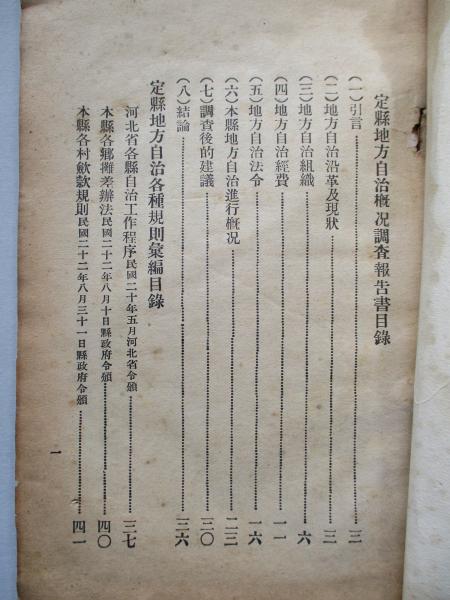 定縣地方自治概況調查報告書目錄
(一)引言……三
(二)地方自治沿革及現狀……三
(三)地方自治組織……六
(四)地方自治經費……一一
(五)地方自治法令……一六
(六)本縣地方自治進行概况……二三
(七)調查後的建議……三〇
(八)結論……三六
定縣地方自治各種規則彙編目錄
河北省各縣自治工作程序民國二十年五月河北省令頒……三七
本縣各鄉攤差辦法民國二十二年八月十日縣政府令頒……四〇
本縣各村歛款規則民國二十二年八月三十一日縣政府令頒……四一
一